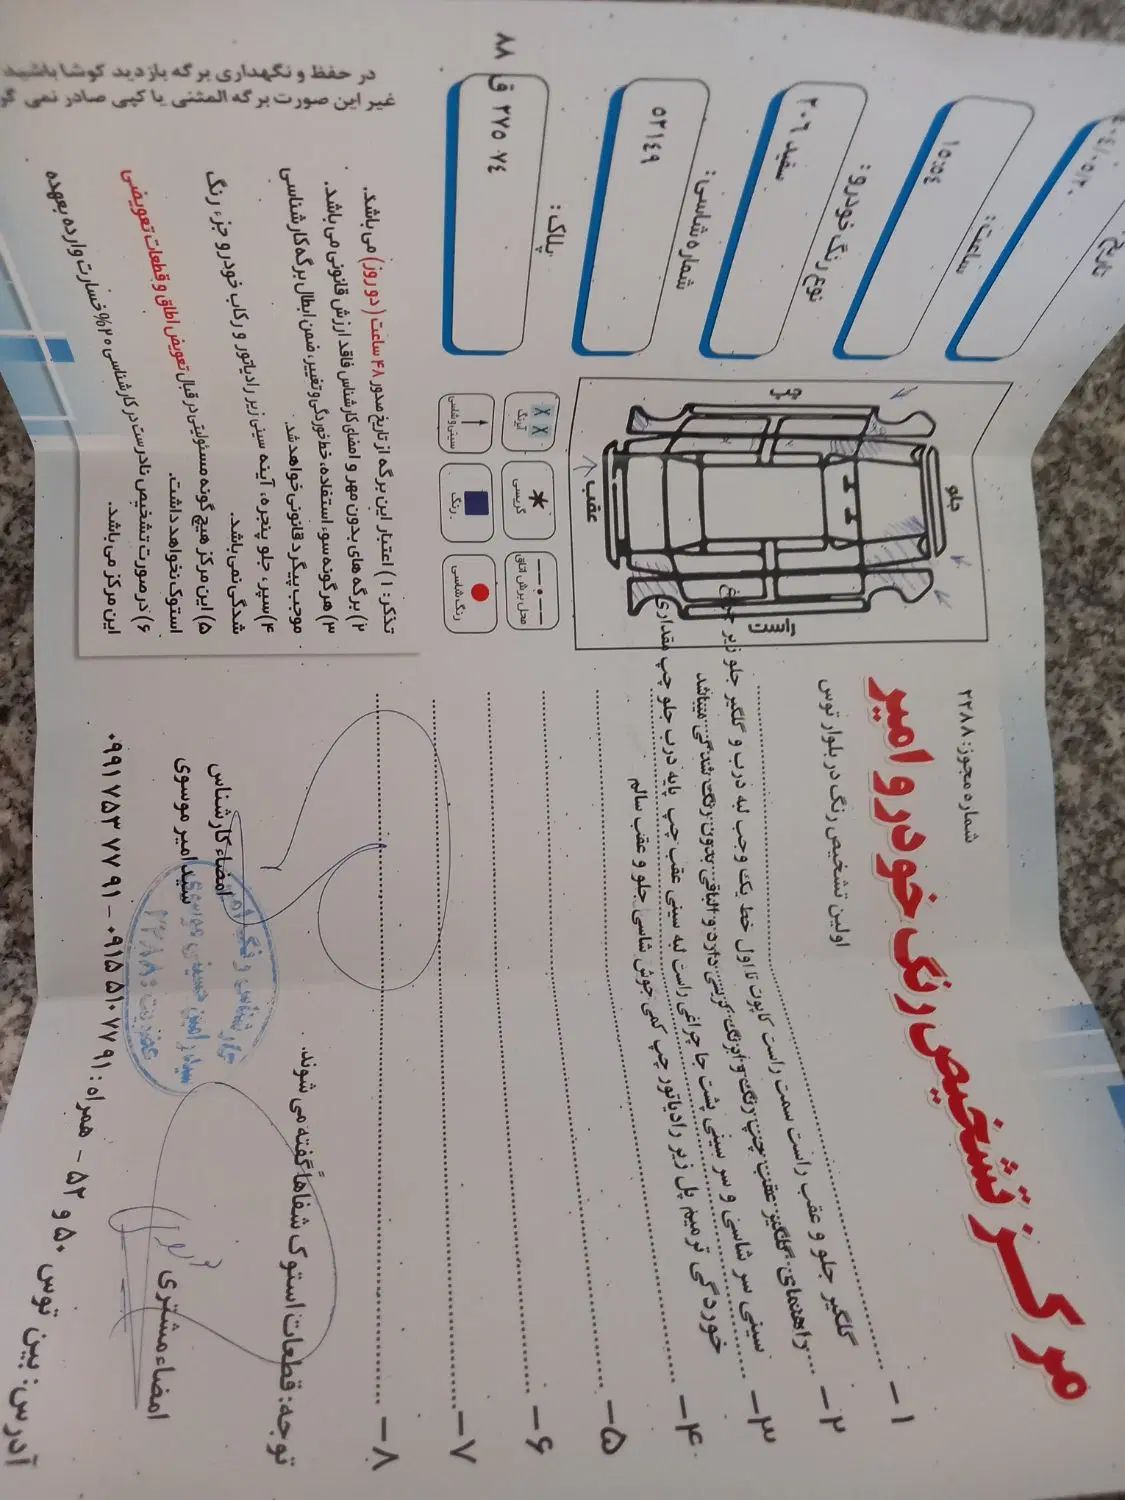 مرکز تشخیص رنگ خودرو امیر
شماره مجوز: ۲۲۸۸
اولین تشخیص رنگ در بلوار توس
تاریخ
ساعت:
۱۵:۵٤
نوع رنگ خودرو:
سفید ۲۰٦
شماره شاسی:
۵۲۱٤۹
پلاک:
۷٤ ۲۷۵ ق ۸۸
جلو
عقب
راست
چپ
۱- گلگیر جلو و عقب راست سمت راست کاپوت تا اول خط یک وجب لبه درب و گلگیر جلو زیر چراغ
۲- راهنمای گلگیر عقب چپ رنگ و ابرنگ گریسی دارد و الباقی بدون رنگ شدگی میباشد
۳- سینی سر شاسی و سر سینی پشت جا چراغی راست لبه سینی عقب چپ پایه درب جلو چپ مقداری
۴- خوردگی ترمیم پل زیر رادیاتور چپ کمی جوش شاسی جلو و عقب سالم
۵-
۶-
۷-
۸-
لیگ
گریسی
محل برش اتاق
سینی و شاسی
رنگ
رنگ شاسی
تذکر: ۱) اعتبار این برگه از تاریخ صدور ۴۸ ساعت (دو روز) می باشد.
۲) برگه های بدون مهر و امضای کارشناس فاقد ارزش قانونی می باشد.
۳) هرگونه سوء استفاده، خط خوردگی و تغییر، ضمن ابطال برگه کارشناسی
موجب پیگرد قانونی خواهد شد.
۴) سپر، جلو پنجره، آینه سینی زیر رادیاتور و رکاب خودرو جزء رنگ
شدگی نمی باشد.
۵) این مرکز هیچ گونه مسئولیتی در قبال تعویض اطاق و قطعات تعویضی
استوک نخواهد داشت.
۶) در صورت تشخیص نادرست در کارشناسی ۲۰% خسارت وارده بعهده
این مرکز می باشد.
در حفظ و نگهداری برگه بازدید کوشا باشید
غیر این صورت برگه المثنی یا کپی صادر نمی گر
توجه: قطعات استوک شفاهاً گفته می شوند.
امضاء کارشناس
سید امیر موسوی
امضاء مشتری
کارشناس رنگ
سید امیر حسینی موسوی
عضویت: ۲۲۸۸
آدرس: بین توس ۵۰ و ۵۲ - همراه: ۰۹۱۵۵۱۰۷۷۹۱ - ۰۹۹۱۷۵۳۷۷۹۱